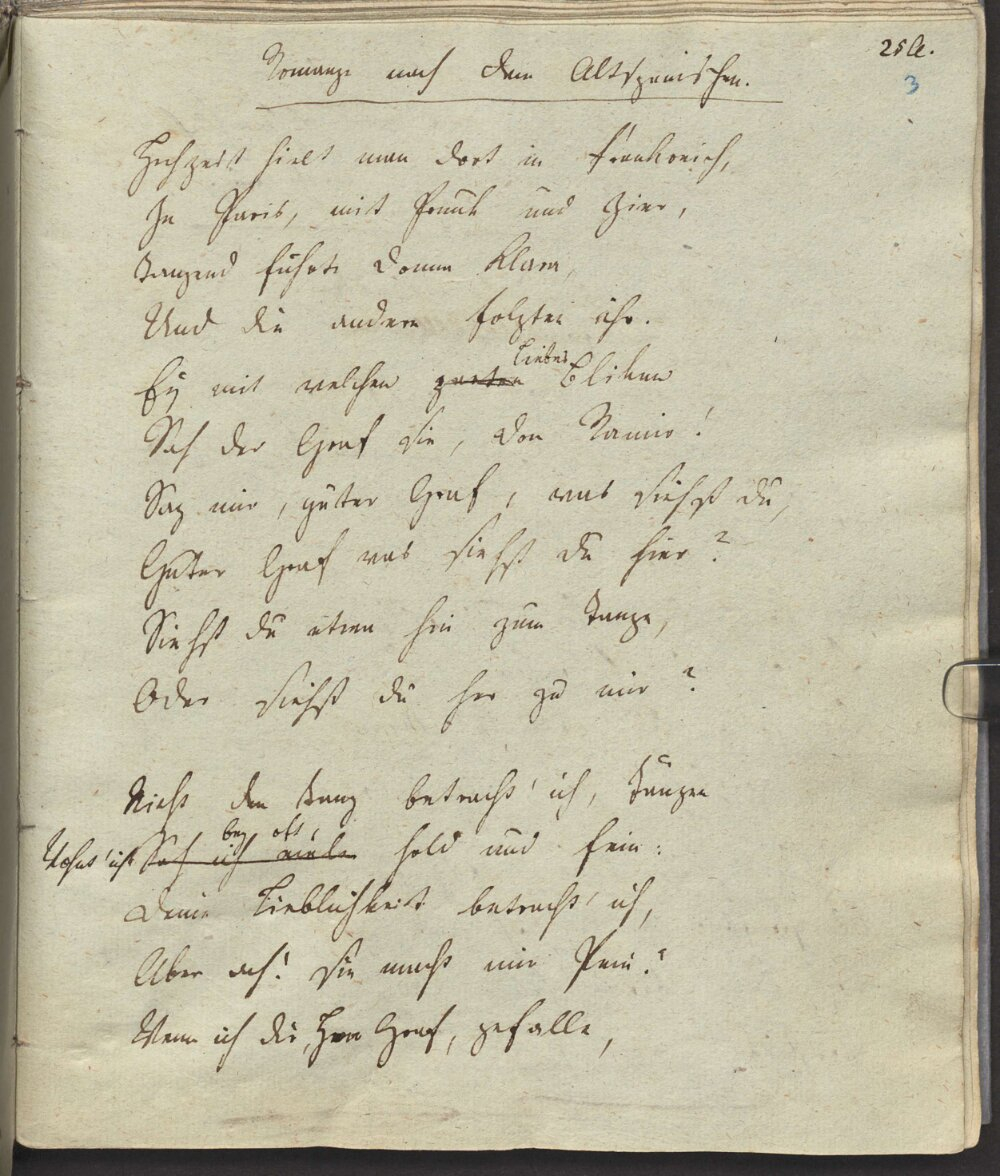 25 A.
3
Romanze nach dem Altspanischen.
Hochzeit hielt man dort in Frankreich,
In Paris, mit Prunk und Zier,
Tanzend führte Donna Klara,
Und die andern folgten ihr.
Ey mit welchen zarten Liebes Bliken
Sah der Graf sie, Don Ramiro!
Sag mir, guter Graf, was siehst du,
Guter Graf was siehst du hier?
Siehst du etwa hin zum Tanze,
Oder siehst du her zu mir?
Nicht den Tanz betracht' ich, Tänzen
Wohnt' ich Sah ich viele bey oft, hold und fein:
Deine Lieblichkeit betracht' ich,
Aber ach! sie macht mir Pein!"
Wenn ich dir, Herr Graf, gefalle,